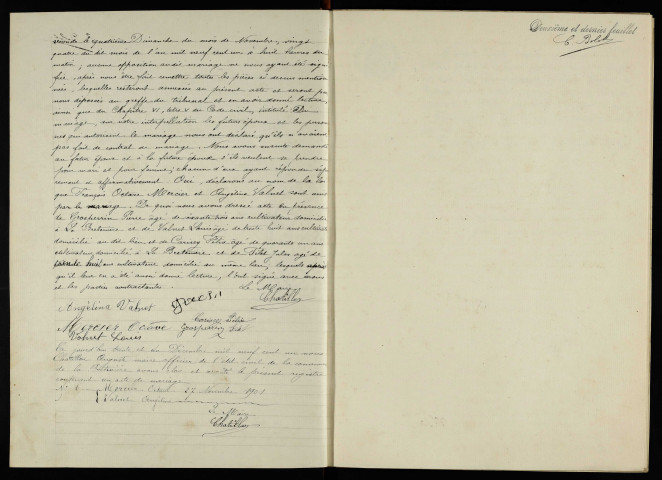 quatrième Dimanche du mois de Novembre, vingt
quatre du dit mois de l'an mil neuf cent un à huit heures du
matin; aucune opposition audit mariage ne nous ayant été signi-
fiée, après nous être fait remettre toutes les pièces ci-dessus mention-
nées, lesquelles resteront annexées au présent acte et seront par
nous déposées au greffe du tribunal et en avoir donné lecture,
ainsi que du Chapitre VI, titre V du Code civil, intitulé Du
mariage, sur notre interpellation les futurs époux, et les person-
nes qui autorisent le mariage nous ont déclaré qu'ils n'avaient
pas fait de contrat de mariage. Nous avons ensuite demandé
au futur époux et à la future épouse s'ils veulent se prendre
pour mari et pour femme; chacun d'eux ayant répondu sépa-
rément et affirmativement Oui, déclarons au nom de la loi
que François Octave Mercier et Angélina Valnet sont unis
par le mariage. De quoi nous avons dressé acte en présence
de Grosperrin Pierre âgé de soixante trois ans cultivateur domicilié
à La Bretenière et de Valnet Louis âgé de trente huit ans cultivateur
domicilié au dit lieu et de âgé de quarante un ans
cultivateur, domicilié à La Bretenière et de Jules âgé de
ans cultivateur domicilié au même lieu, lesquels après
qu'il leur en a été aussi donné lecture, l'ont signé avec nous
et les parties contractantes.
Le Maire
Chatillon
Angélina Valnet
Mercier Octave Grosperrin
Valnet Louis
Ce jourd'hui trente et un Décembre mil neuf cent un nous
Chatillon Auguste maire officier de l'état civil de la commune
de La Bretenière avons clos et arrêté le présent registre
contenant un acte de mariage.
N° 1 Mercier Octave 27 Novembre 1901
Valnet Angélina
Le Maire
Chatillon
Deuxième et dernier feuillet